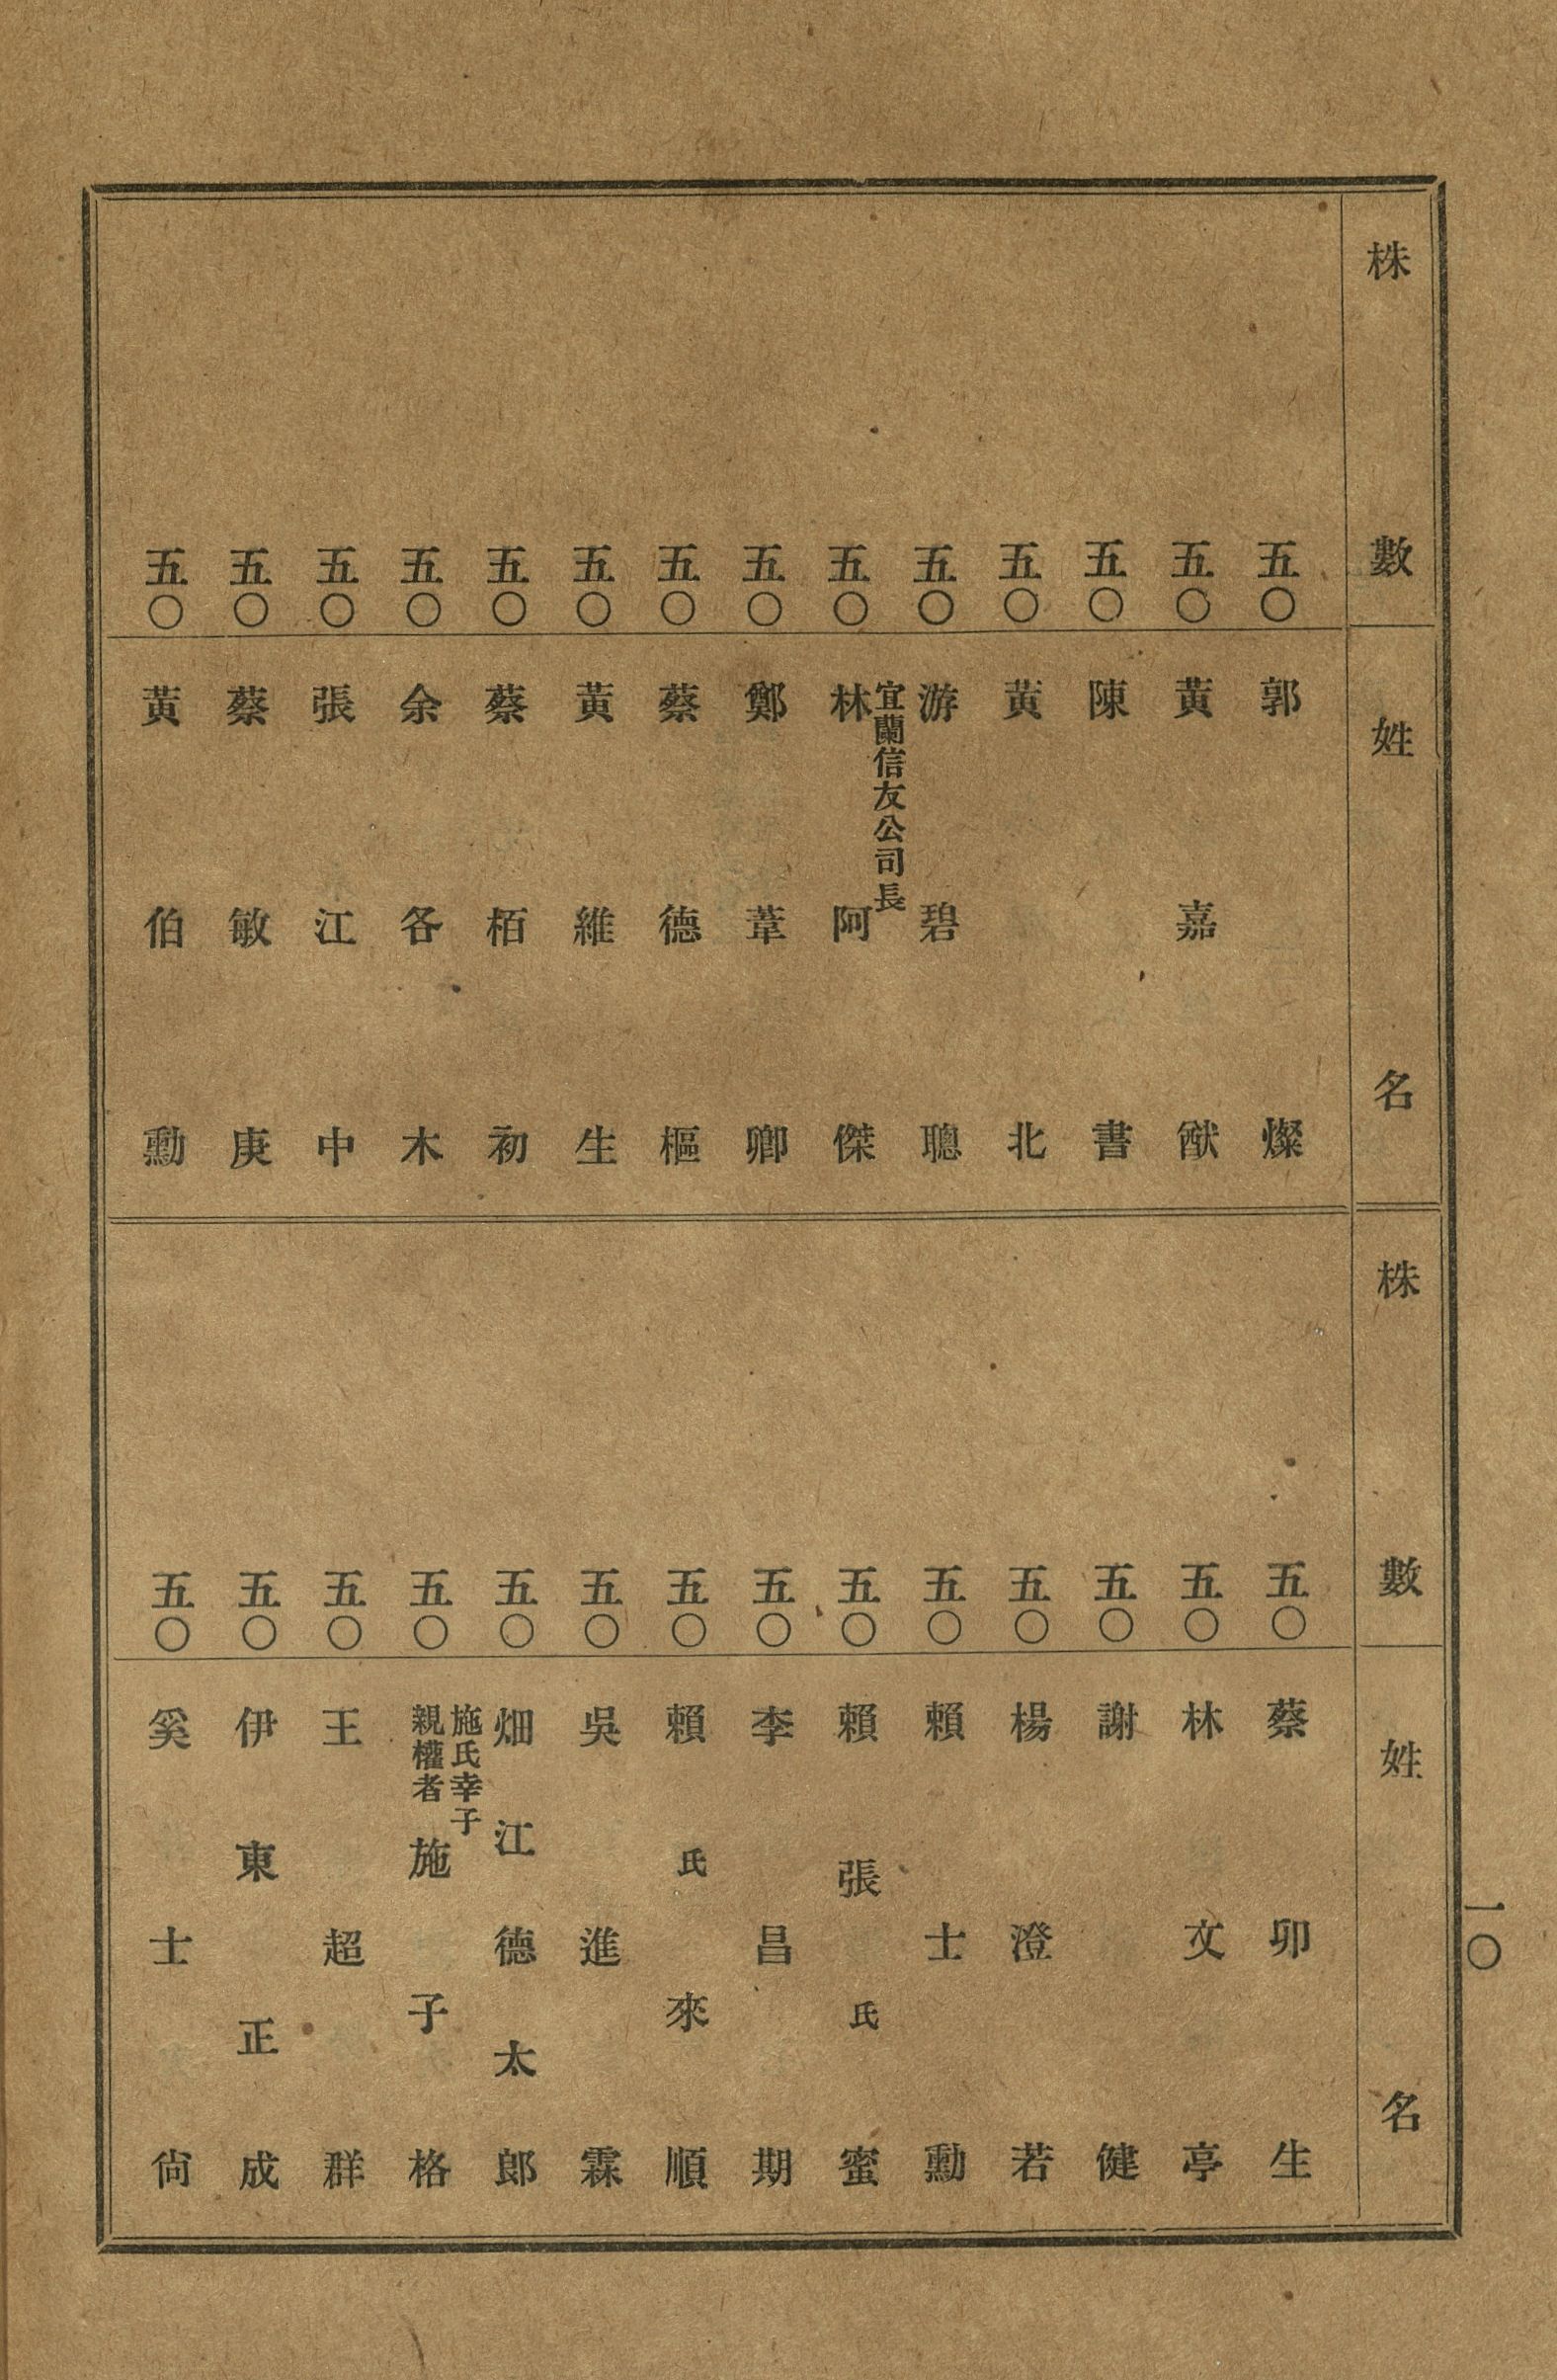 株數 姓名
五〇 郭燦
五〇 黃嘉猷
五〇 陳書
五〇 黃北
五〇 游碧聰
五〇 宜蘭信友公司長 林阿傑
五〇 鄭葦卿
五〇 蔡德樞
五〇 黃維生
五〇 蔡栢初
五〇 余各木
五〇 張江中
五〇 蔡敏庚
五〇 黃伯勳
株數 姓名
五〇 蔡卯生
五〇 林文亭
五〇 謝健
五〇 楊澄若
五〇 賴士勳
五〇 賴張氏蜜
五〇 李昌期
五〇 賴氏來順
五〇 吳進霖
五〇 畑江德太郎
五〇 施氏幸子親權者 施子格
五〇 王超群
五〇 伊東正成
五〇 奚士尙
一〇